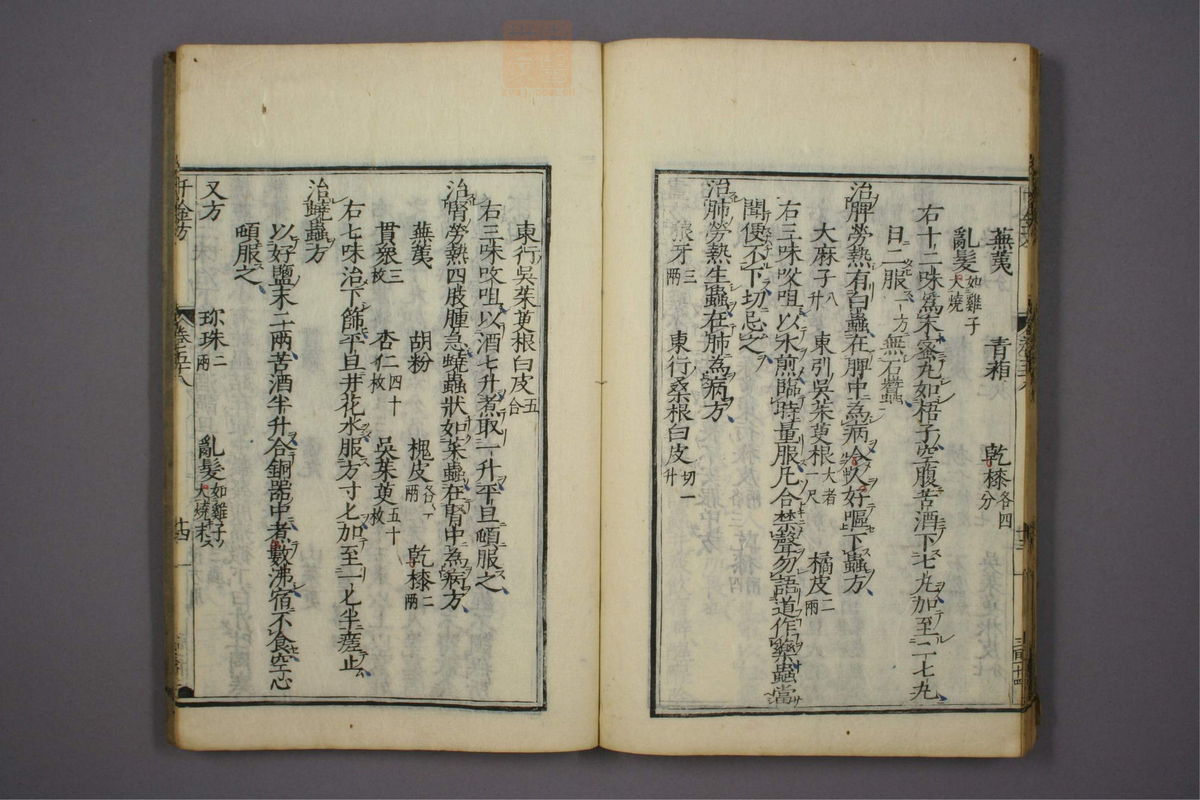 蕪荑 青葙 乾㯃各四分
亂髮如雞子大燒
右十二味爲末蜜丸如梧子空腹苦酒下七丸加至二七丸
日二服一方無石蠶
治脾勞熱有白蟲在脾中爲病令人好嘔下蟲方
大麻子八升 東引吳茱萸根大者一尺 橘皮二兩
右三味㕮咀以水煎臨時量服凡合禁聲勿語道作藥蟲當
聞便不下切忌之
治肺勞熱生蟲在肺為病方
狼牙三兩 東行桑根白皮切一升
東行吳茱萸根白皮五合
右三味㕮咀以酒七升煮取一升平旦頓服之
治腎勞熱四肢腫急蟯蟲狀如菜蟲在腎中為病方
蕪荑 胡粉 槐皮各八兩 乾㯃二兩
貫衆三枚 杏仁四十枚 吳茱萸五十枚
右七味治下篩平旦井花水服方寸匕加至一匕半瘥止
治蟯蟲方
以好鹽末二兩苦酒半升合銅器中煮數沸宿不食空心
頓服之
又方 珎珠二兩 亂髮如雞子大燒末
千金方 卷五十八 廿四